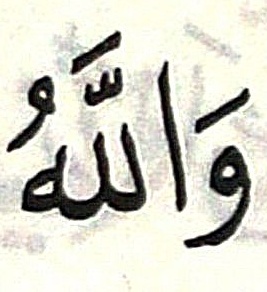 وَاللَّهُ